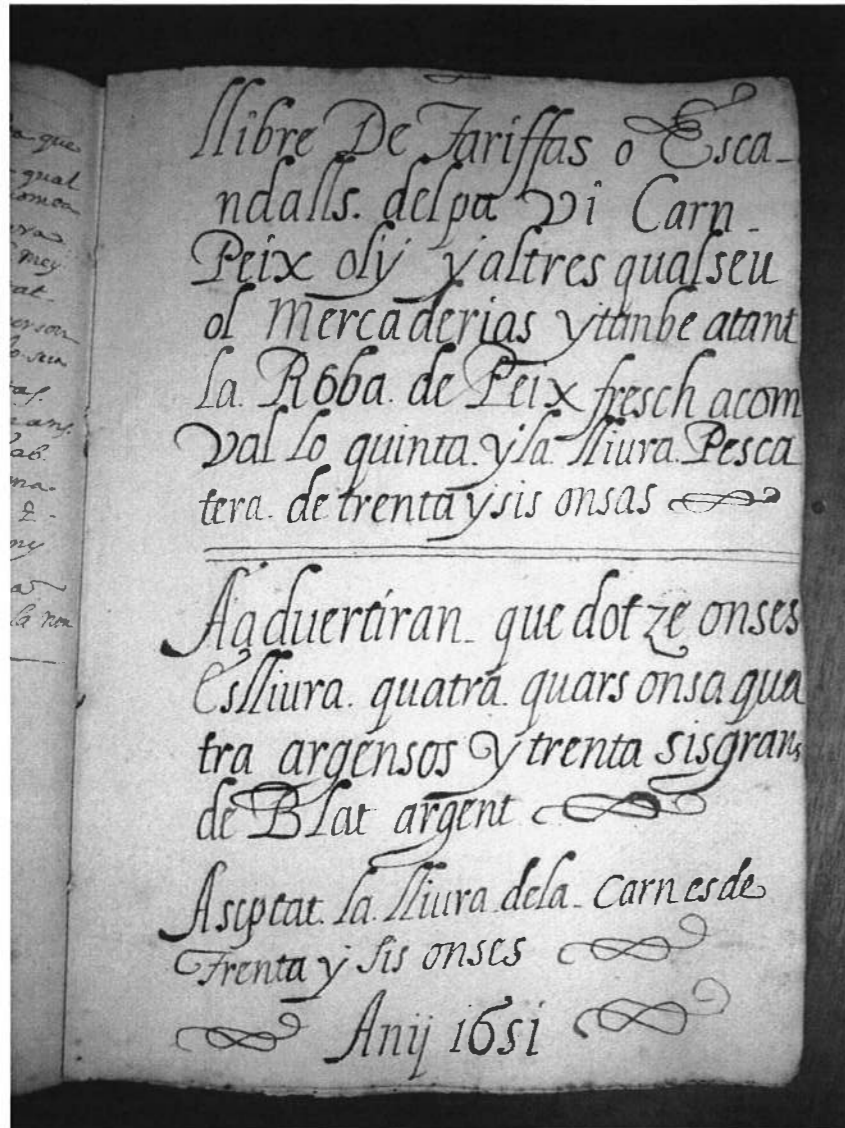 llibre De Tariffas o Esca-
ndalls. del pa Vi Carn-
Peix oly y altres qualseu
ol Mercaderias y tanbe atant
la. Roba. de Peix fresch acom
Val lo quinta. y la. lliura. Pesca
tera. de trenta y sis onsas
Aqduertiran- que dotze onses
Es lliura. quatra. quars onsa qua
tra argensos y trenta sis grans
de Blat argent
Aseptat. la. lliura. de la- Carn es de
Trenta y sis onses
Anij 1651
que
qual
mey
la non